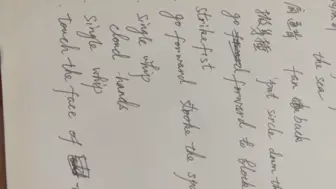 the sea
fan back
put circle down th
go forward to block
strike fist
go forward stroke the
single whip
cloud hands
single whip
touch the face of